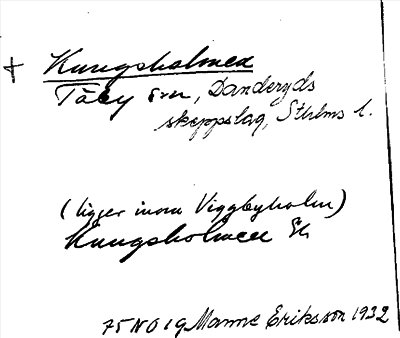 + Kungsholmen
Täby srn, Danderyds
skeppslag, Sthlms l.
(ligger inom Viggbyholm)
Kungsholmen Ek
75 NO 19 Manne Eriksson 1932